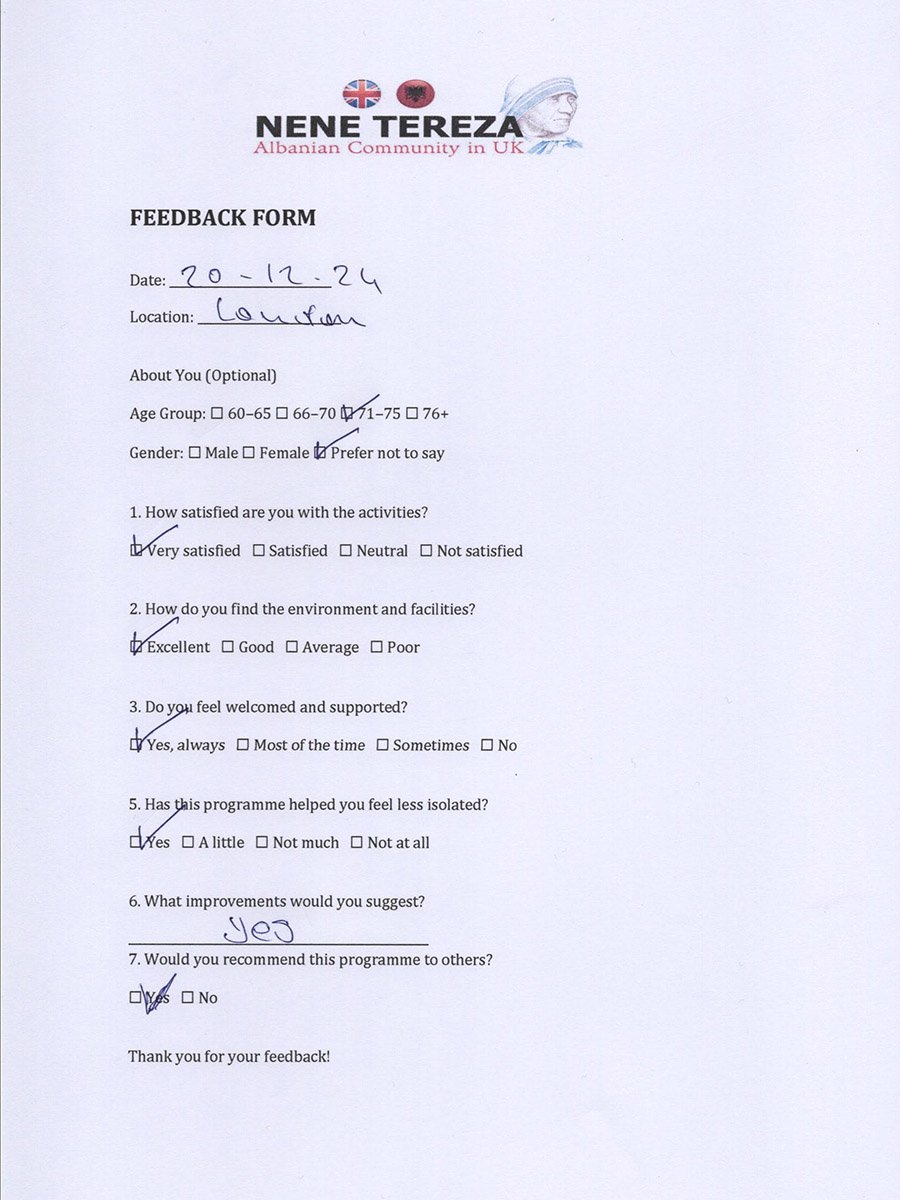 NENE TEREZA
Albanian Community in UK
FEEDBACK FORM
Date: 20-12.24
Location: London
About You (Optional)
Age Group: ☐ 60–65 ☐ 66–70 ☑ 71–75 ☐ 76+
Gender: ☐ Male ☐ Female ☑ Prefer not to say
1. How satisfied are you with the activities?
☑ Very satisfied ☐ Satisfied ☐ Neutral ☐ Not satisfied
2. How do you find the environment and facilities?
☑ Excellent ☐ Good ☐ Average ☐ Poor
3. Do you feel welcomed and supported?
☑ Yes, always ☐ Most of the time ☐ Sometimes ☐ No
5. Has this programme helped you feel less isolated?
☑ Yes ☐ A little ☐ Not much ☐ Not at all
6. What improvements would you suggest?
yes
7. Would you recommend this programme to others?
☑ Yes ☐ No
Thank you for your feedback!